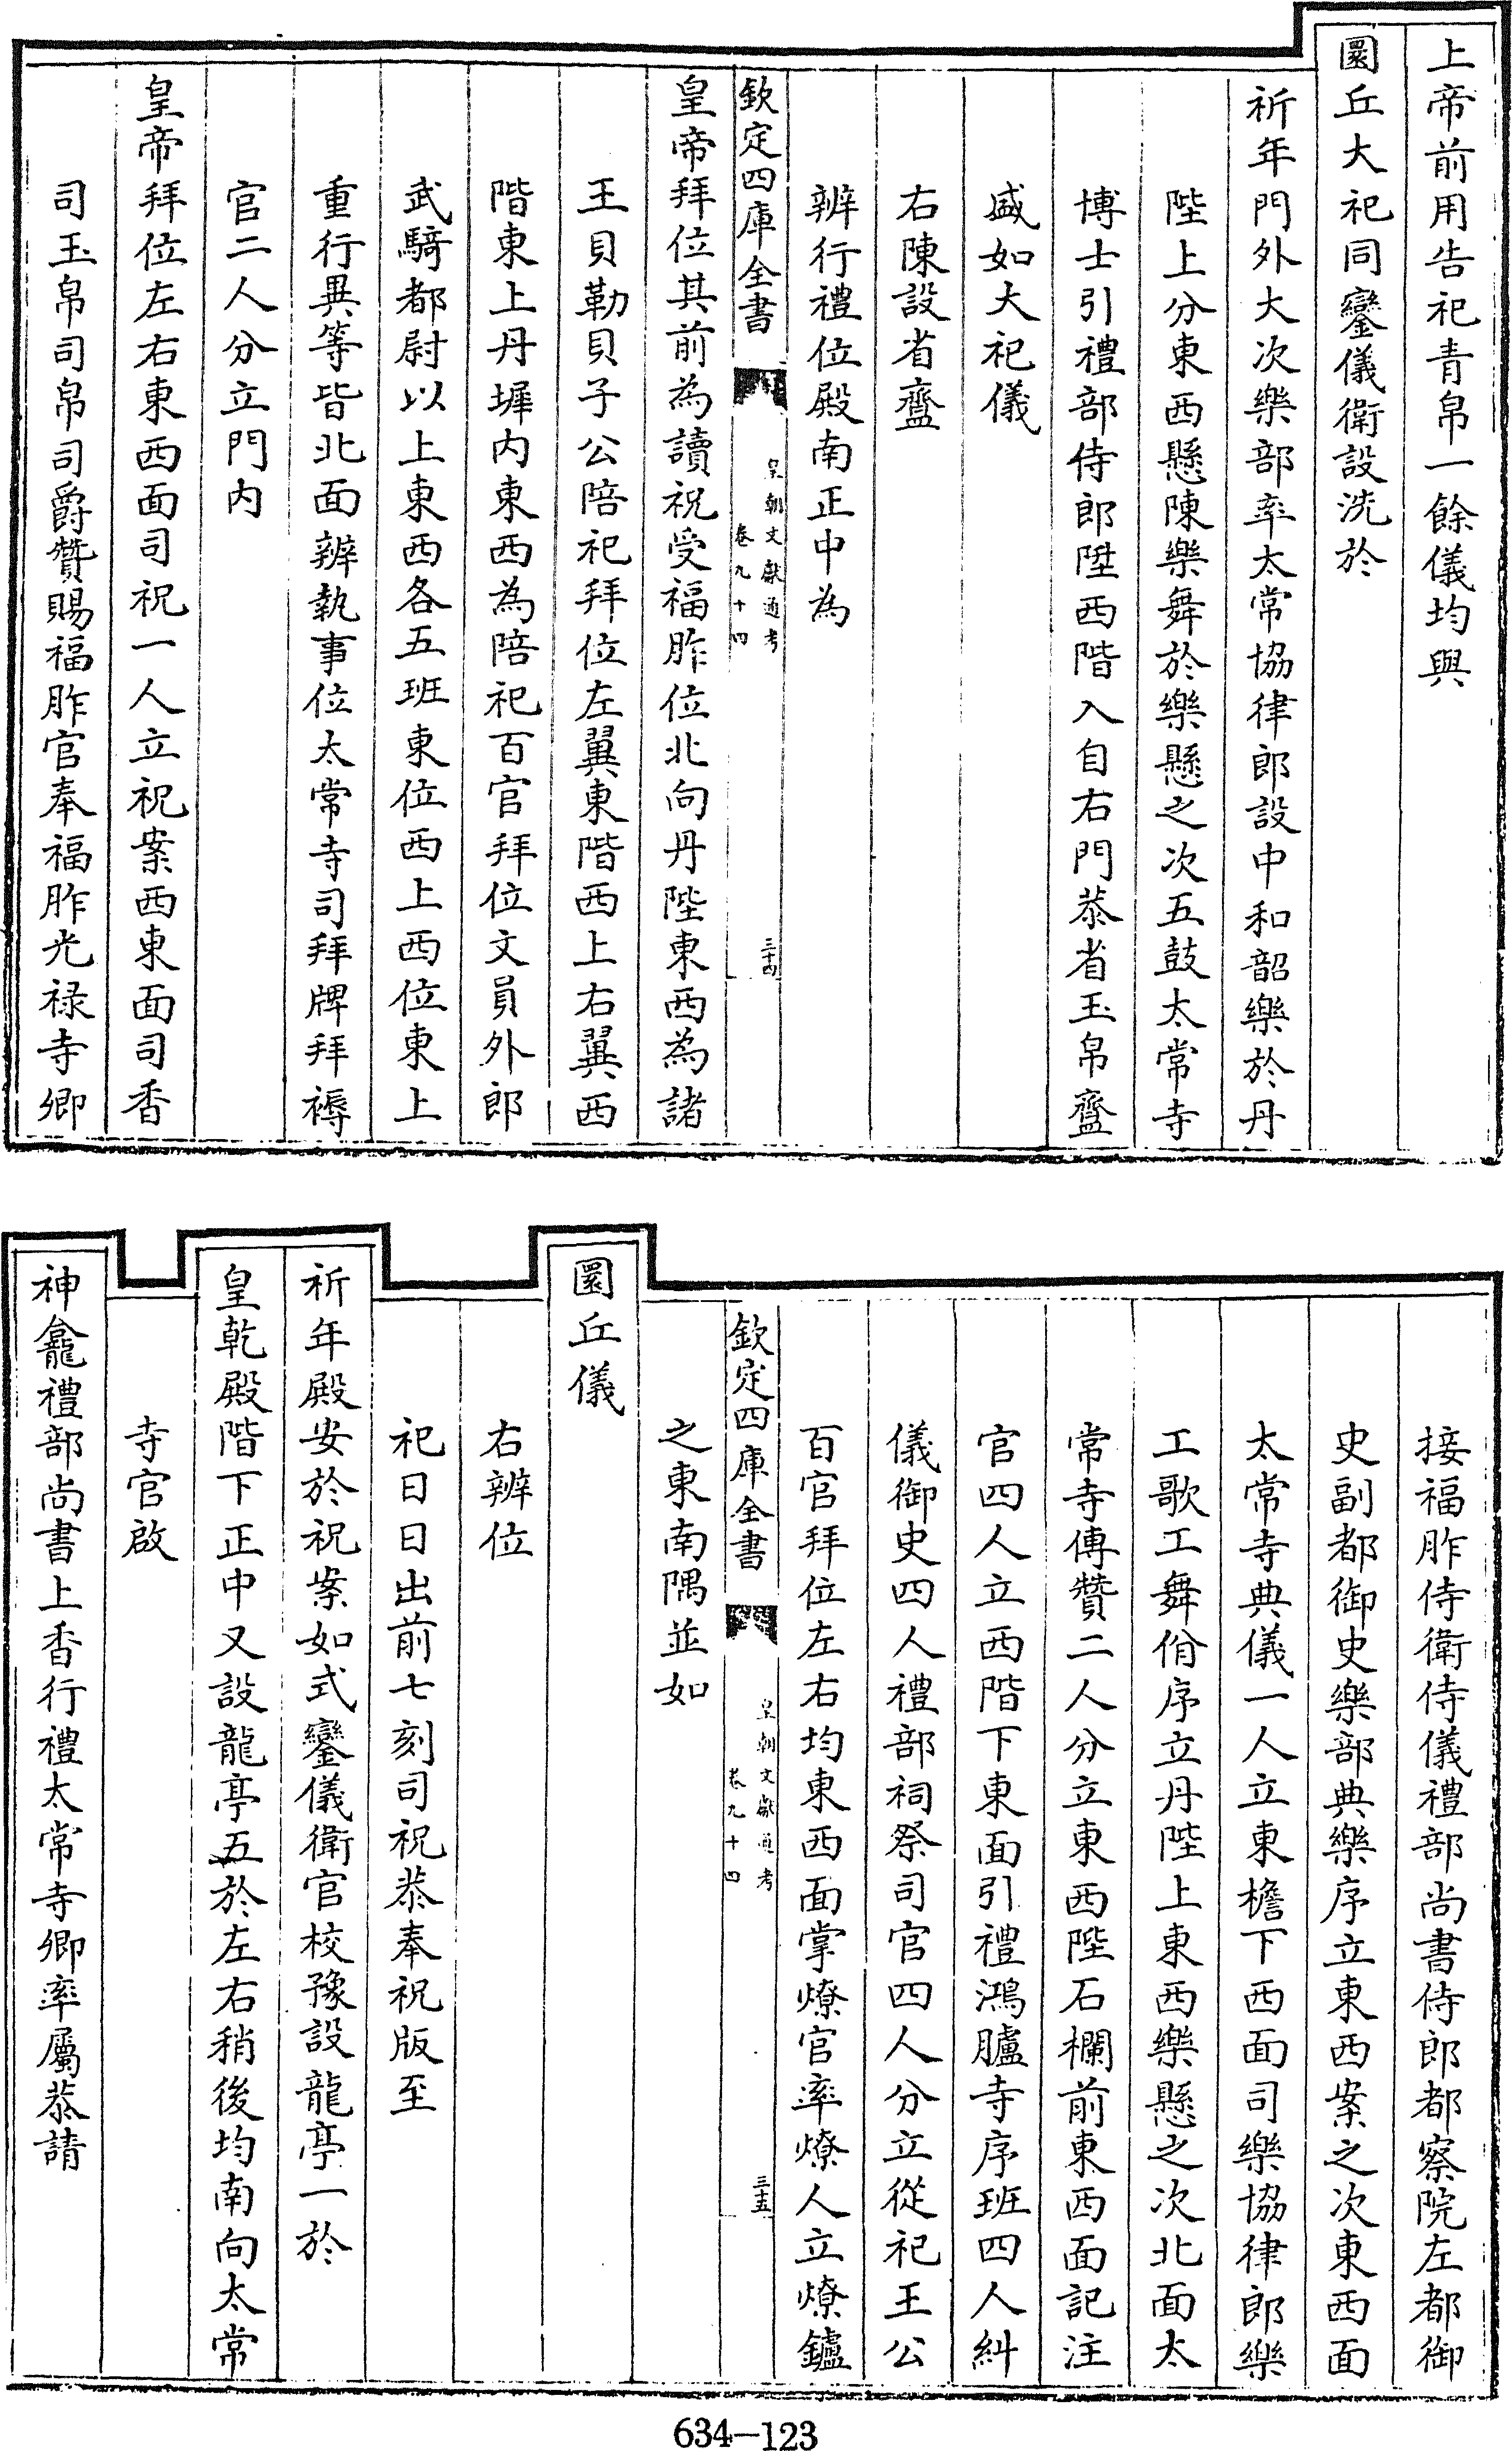 上帝前用告祀青帛一餘儀均與
圜丘大祀同鑾儀衛設洗於
祈年門外大次樂部率太常協律郎設中和韶樂於丹
陛上分東西懸陳樂舞於樂懸之次五鼓太常寺
博士引禮部侍郎陞西階入自右門恭省玉帛齍
盛如大祀儀
右陳設省齍
辨行禮位殿南正中為
欽定四庫全書
皇朝文獻通考
卷九十四
三十四
皇帝拜位其前為讀祝受福胙位北向丹陛東西為諸
王貝勒貝子公陪祀拜位左翼東階西上右翼西
階東上丹墀内東西為陪祀百官拜位文員外郎
武騎都尉以上東西各五班東位西上西位東上
重行異等皆北面辨執事位太常寺司拜牌拜褥
官二人分立門内
皇帝拜位左右東西面司祝一人立祝案西東面司香
司玉帛司帛司爵贊賜福胙官奉福胙光禄寺卿
接福胙侍衛侍儀禮部尚書侍郎都察院左都御
史副都御史樂部典樂序立東西案之次東西面
太常寺典儀一人立東檐下西面司樂協律郎樂
工歌工舞佾序立丹陛上東西樂懸之次北面太
常寺傳贊二人分立東西陛石欄前東西面記注
官四人立西階下東面引禮鴻臚寺序班四人糾
儀御史四人禮部祠祭司官四人分立從祀王公
百官拜位左右均東西面掌燎官率燎人立燎鑪
欽定四庫全書
皇朝文獻通考
卷九十四
三十五
之東南隅並如
圜丘儀
右辨位
祀日日出前七刻司祝恭奉祝版至
祈年殿安於祝案如式鑾儀衛官校豫設龍亭一於
皇乾殿階下正中又設龍亭五於左右稍後均南向太常
寺官啟
神龕禮部尚書上香行禮太常寺卿率屬恭請
634-123